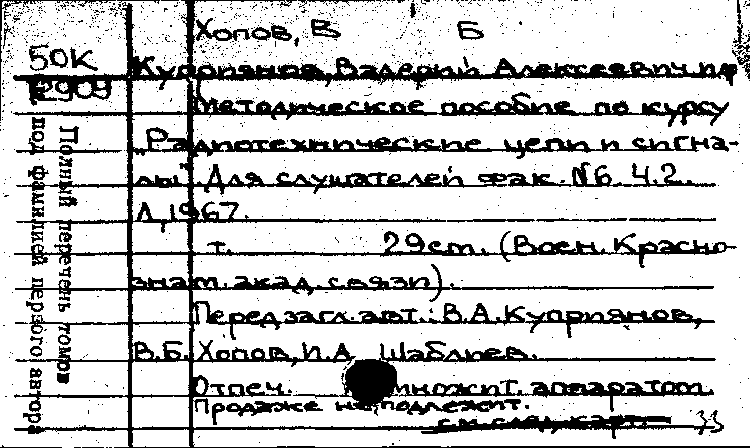 Хопов, В Б
50К
2909
Куприянов, Валерий Алексеевич и др
Методическое пособие по курсу
„Радиотехнические цепи и сигна-
лы". Для слушателей фак. №6 Ч.2.
Л, 1967.
т. 29см. (Воен. Красно-
знам. акад. связи).
Перед загл. авт.: В.А. Куприянов,
В.Б. Хопов, И.А Шаблиев.
Отпеч. множит. аппаратом.
Продаже не подлежит.
см. след. карт. 33
Полный перечень томов
под фамилией первого автора